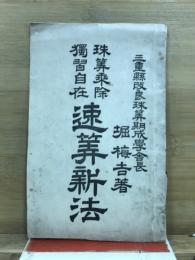 三重縣改良珠算期成學会長
堀梅吉著
珠算乘除
獨習自在
速算新法